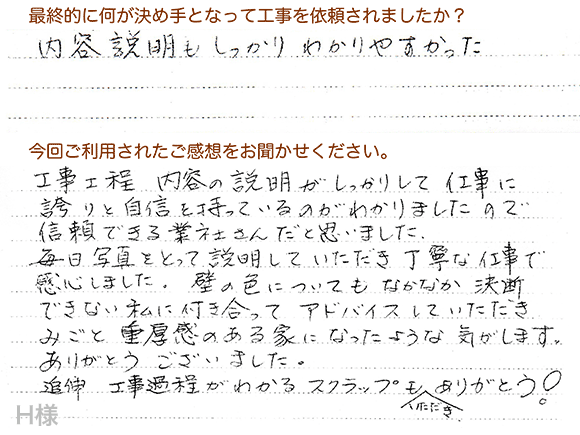 最終的に何が決め手となって工事を依頼されましたか？
内容説明もしっかりわかりやすかった
今回ご利用されたご感想をお聞かせください。
工事工程 内容の説明がしっかりして仕事に
誇りと自信を持っているのがわかりましたので
信頼できる業社さんだと思いました。
毎日写真をとって説明していただき丁寧な仕事で
感心しました。壁の色についてもなかなか決断
できない私に付き合ってアドバイスしていただき
みごと重厚感のある家になったような気がします。
ありがとうございました。
追伸 工事過程がわかるスクラップもありがとう！
いただき
H様